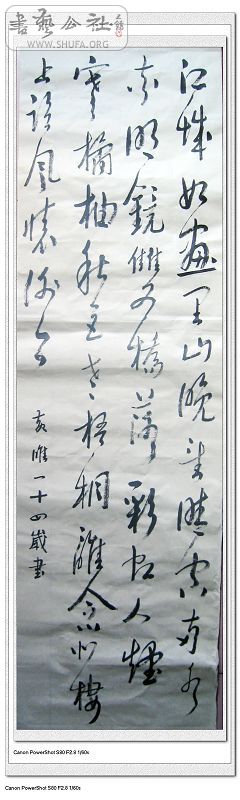 書藝公社
WWW.SHUFA.ORG
江城如畫里山晚望晴空兩水
夾明鏡雙橋落彩虹人煙
寒橘柚秋色老梧桐誰念北樓
上臨風懷謝公
唯一十四歲書
Canon PowerShot S80 F2.8 1/60s
Canon PowerShot S80 F2.8 1/60s